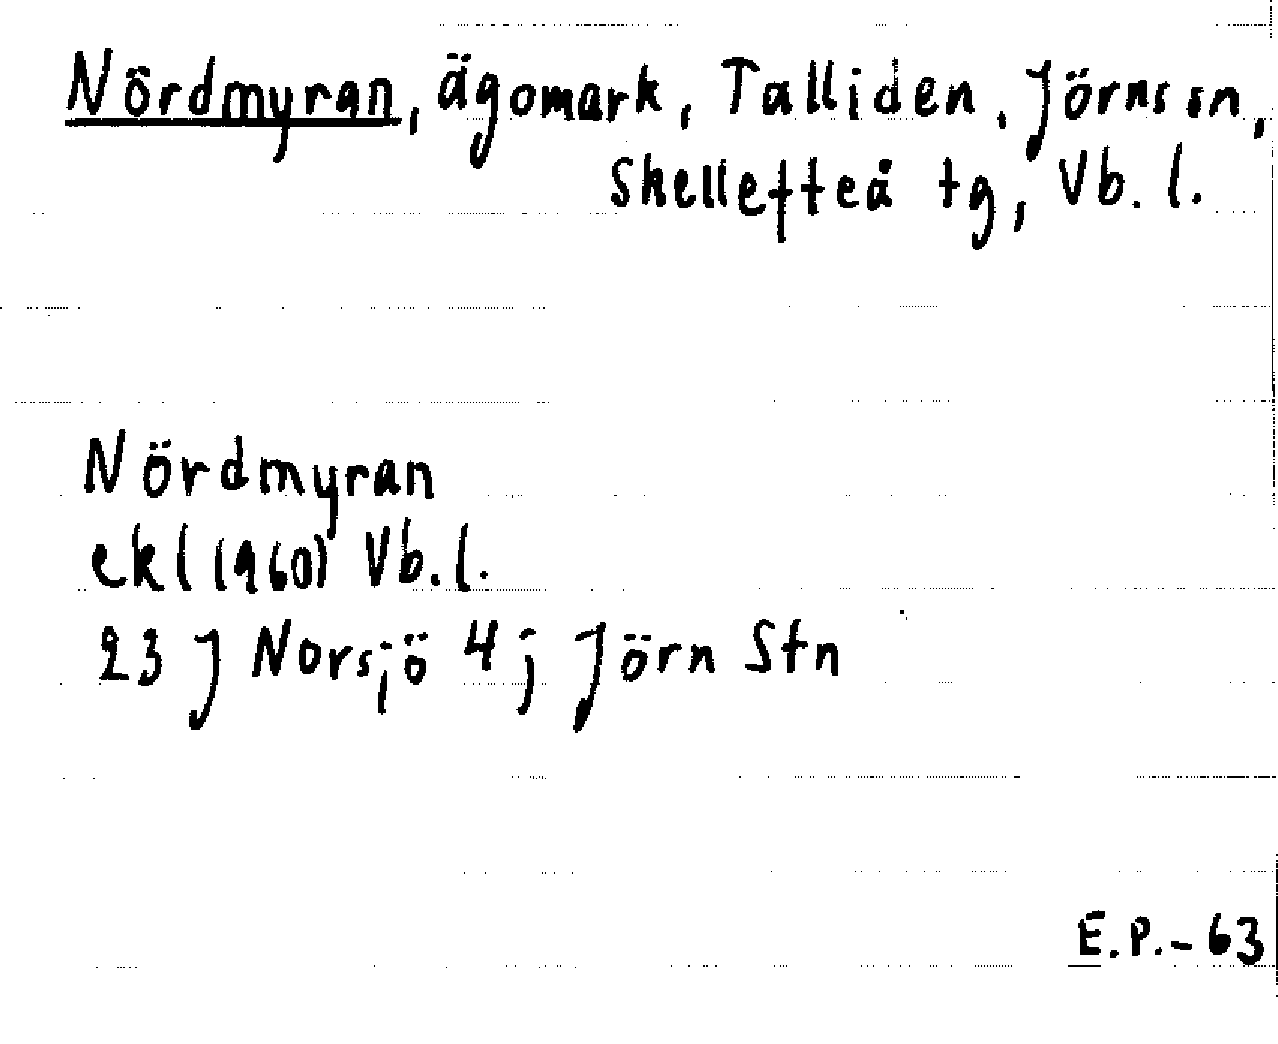 Nördmyran, ägomark, Talliden, Jörns sn,
Skellefteå tg, Vb. l.
Nördmyran
ekl (1960) Vb. l.
23 J Norsjö 4 j Jörn Stn
E.P.-63